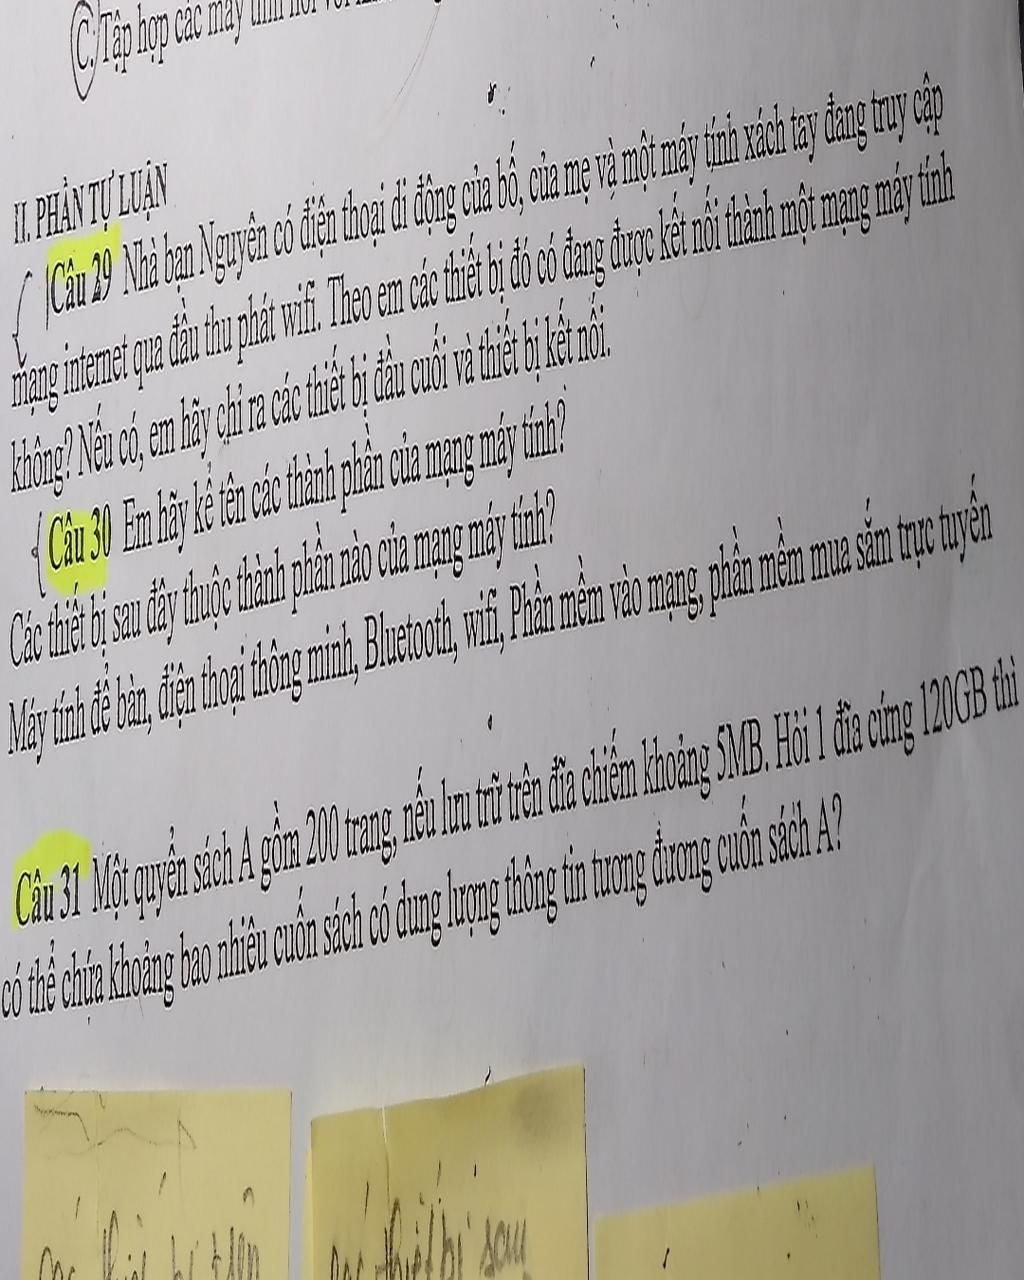 C. Tập hợp các máy tính nối với
II. PHẦN TỰ LUẬN
Câu 29 Nhà bạn Nguyên có điện thoại di động của bố, của mẹ và một máy tính xách tay đang truy cập
mạng internet qua đầu thu phát wifi. Theo em các thiết bị đó có đang được kết nối thành một mạng máy tính
không? Nếu có, em hãy chỉ ra các thiết bị đầu cuối và thiết bị kết nối.
Câu 30 Em hãy kể tên các thành phần của mạng máy tính?
Các thiết bị sau đây thuộc thành phần nào của mạng máy tính?
Máy tính để bàn, điện thoại thông minh, Bluetooth, wifi, Phần mềm vào mạng, phần mềm mua sắm trực tuyến
Câu 31 Một quyển sách A gồm 200 trang, nếu lưu trữ trên đĩa chiếm khoảng 5MB. Hỏi 1 đĩa cứng 120GB thì
có thể chứa khoảng bao nhiêu cuốn sách có dung lượng thông tin tương đương cuốn sách A?
các thiết bị sau